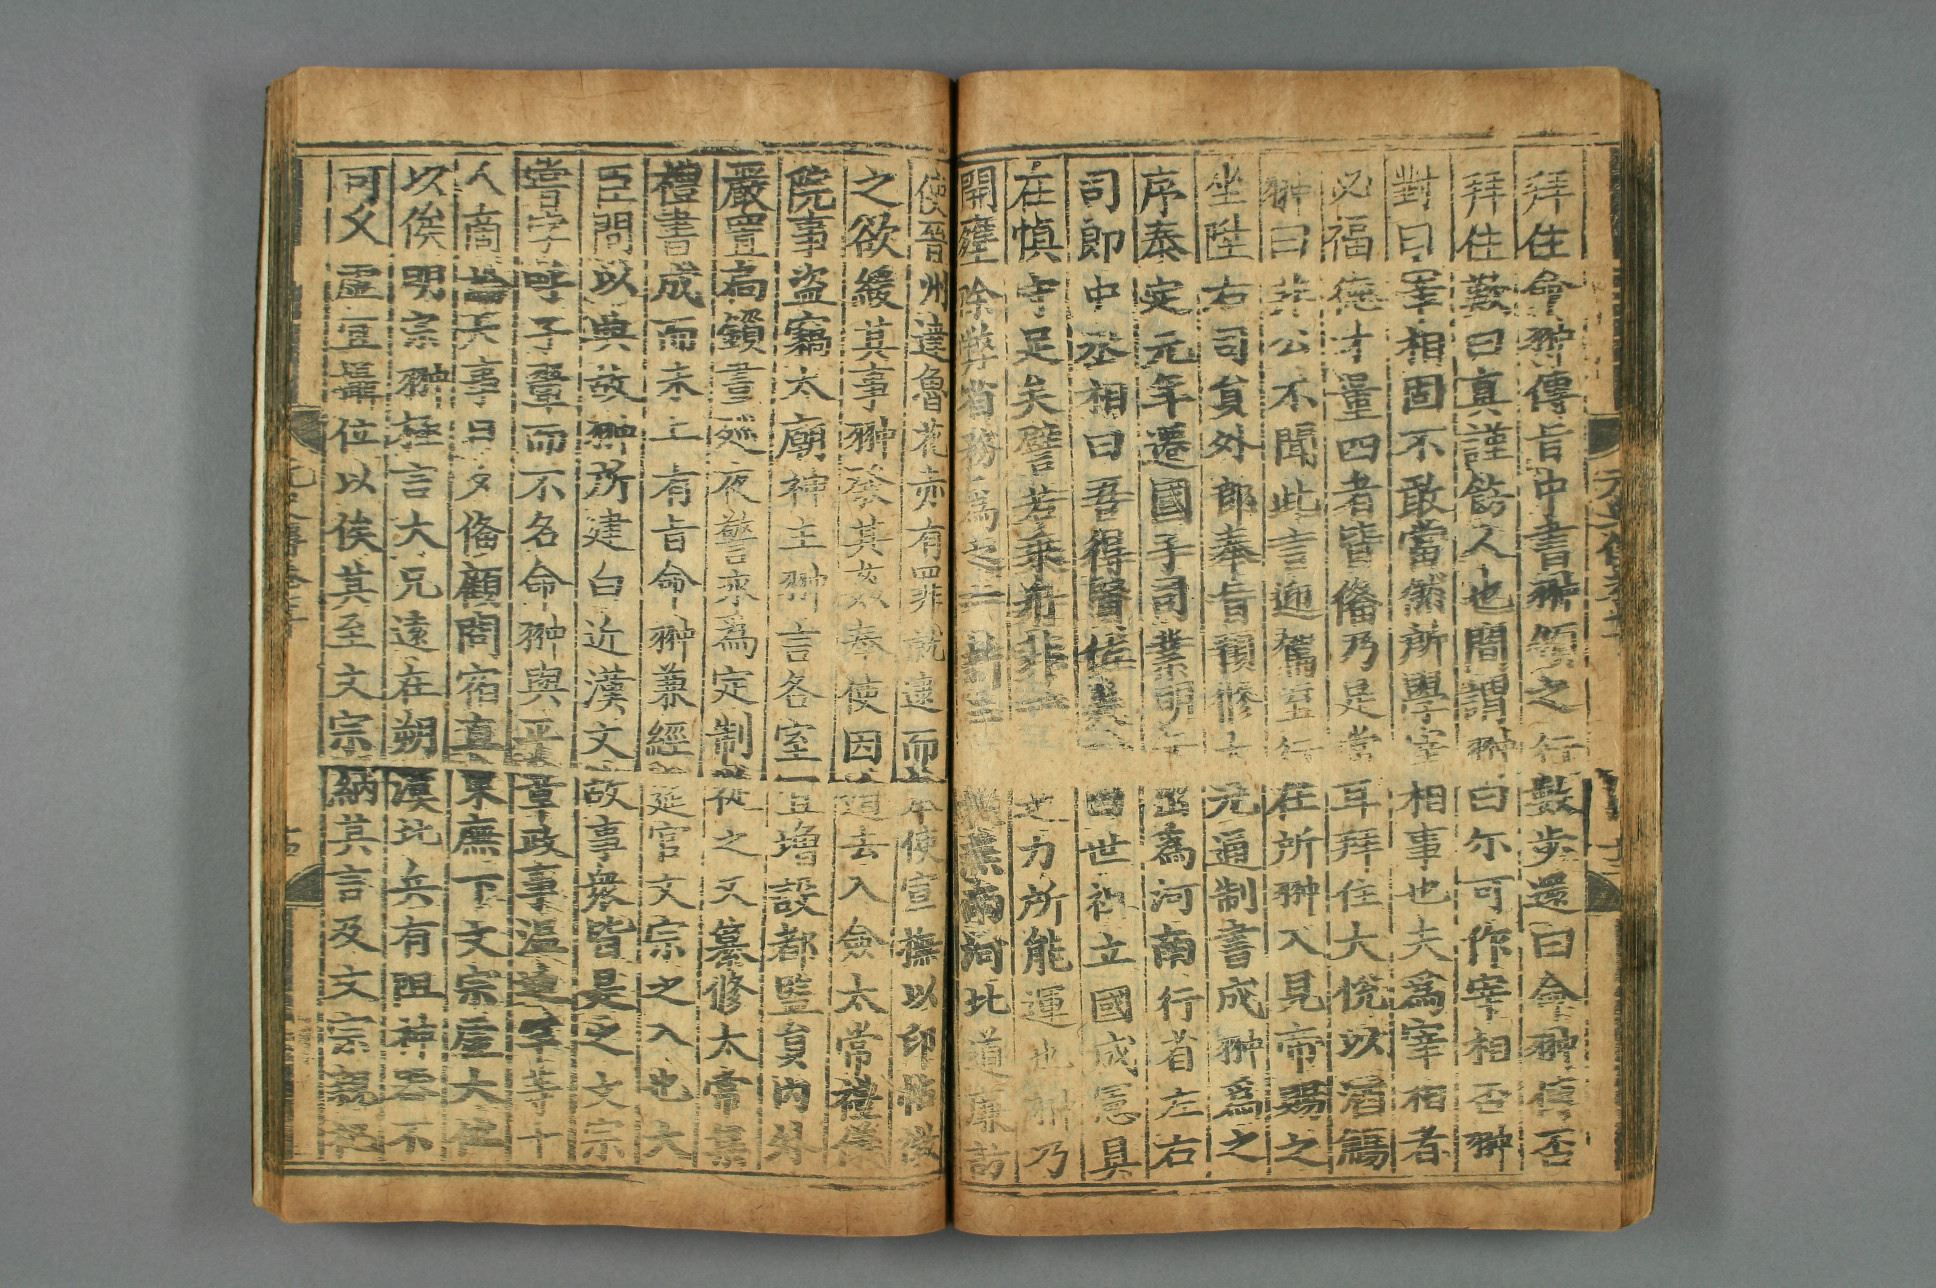 拜住會翀傳旨中書翀領之行數步還曰命翀傳否
拜住歎曰真謹飭人也間謂翀曰尔可作宰相否翀
對曰宰相固不敢當然所學宰相事也夫爲宰相者
必福德才量四者皆俻乃足當耳拜住大悅以酒觴
翀曰非公不聞此言迎駕至行在所翀入見帝賜之
坐陞右司員外郎奉旨預修大元通制書成翀爲之
序泰定元年遷國子司業明年出爲河南行省左右
司郎中丞相曰吾得賢佐矣翀曰世祖立國成憲具
在慎守足矣譬若乘舟非一人之力所能運也翀乃
開壅除弊省務爲之一新三年 河北道廉訪
使晉州達魯花赤有罪就逮而 使宣撫以印帖徵
之欲緩其事翀發其姦奏使因 遁去入僉太常禮儀
院事盗竊太廟神主翀言各室宜增設都監員內外
嚴置扃鎖晝巡夜警永爲定制從之又纂修太常集
禮書成而未上有旨命翀兼經筵官文宗之入也大
臣問以典故翀所建白近漢文故事衆皆是之文宗
嘗字呼子翬而不名命翀與平章政事溫迪罕等十
人商論天事日夕俻顧問宿直東廡下文宗虛大位
以俟明宗翀極言大兄遠在朔漠北兵有阻神器不
可久虛宜攝位以俟其至文宗納其言及文宗親祀
元史傳卷七十